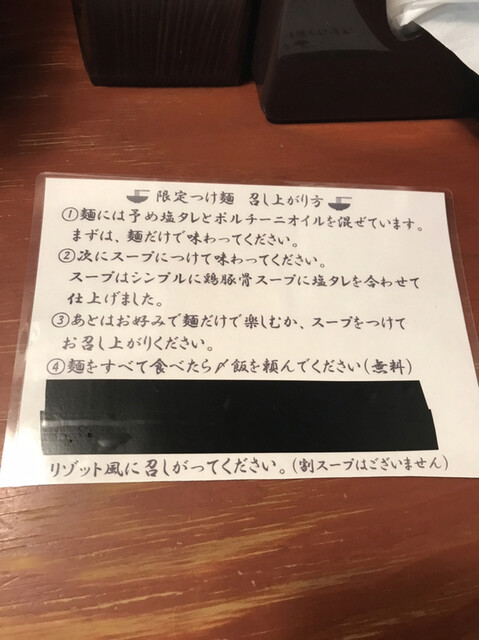 限定つけ麺 召し上がり方
①麺には予め塩タレとポルチーニオイルを混ぜています。
まずは、麺だけで味わってください。
②次にスープにつけて味わってください。
スープはシンプルに鶏豚骨スープに塩タレを合わせて
仕上げました。
③あとはお好みで麺だけで楽しむか、スープをつけて
お召し上がりください。
④麺をすべて食べたら〆飯を頼んでください(無料)
リゾット風に召しがってください。(割スープはございません)